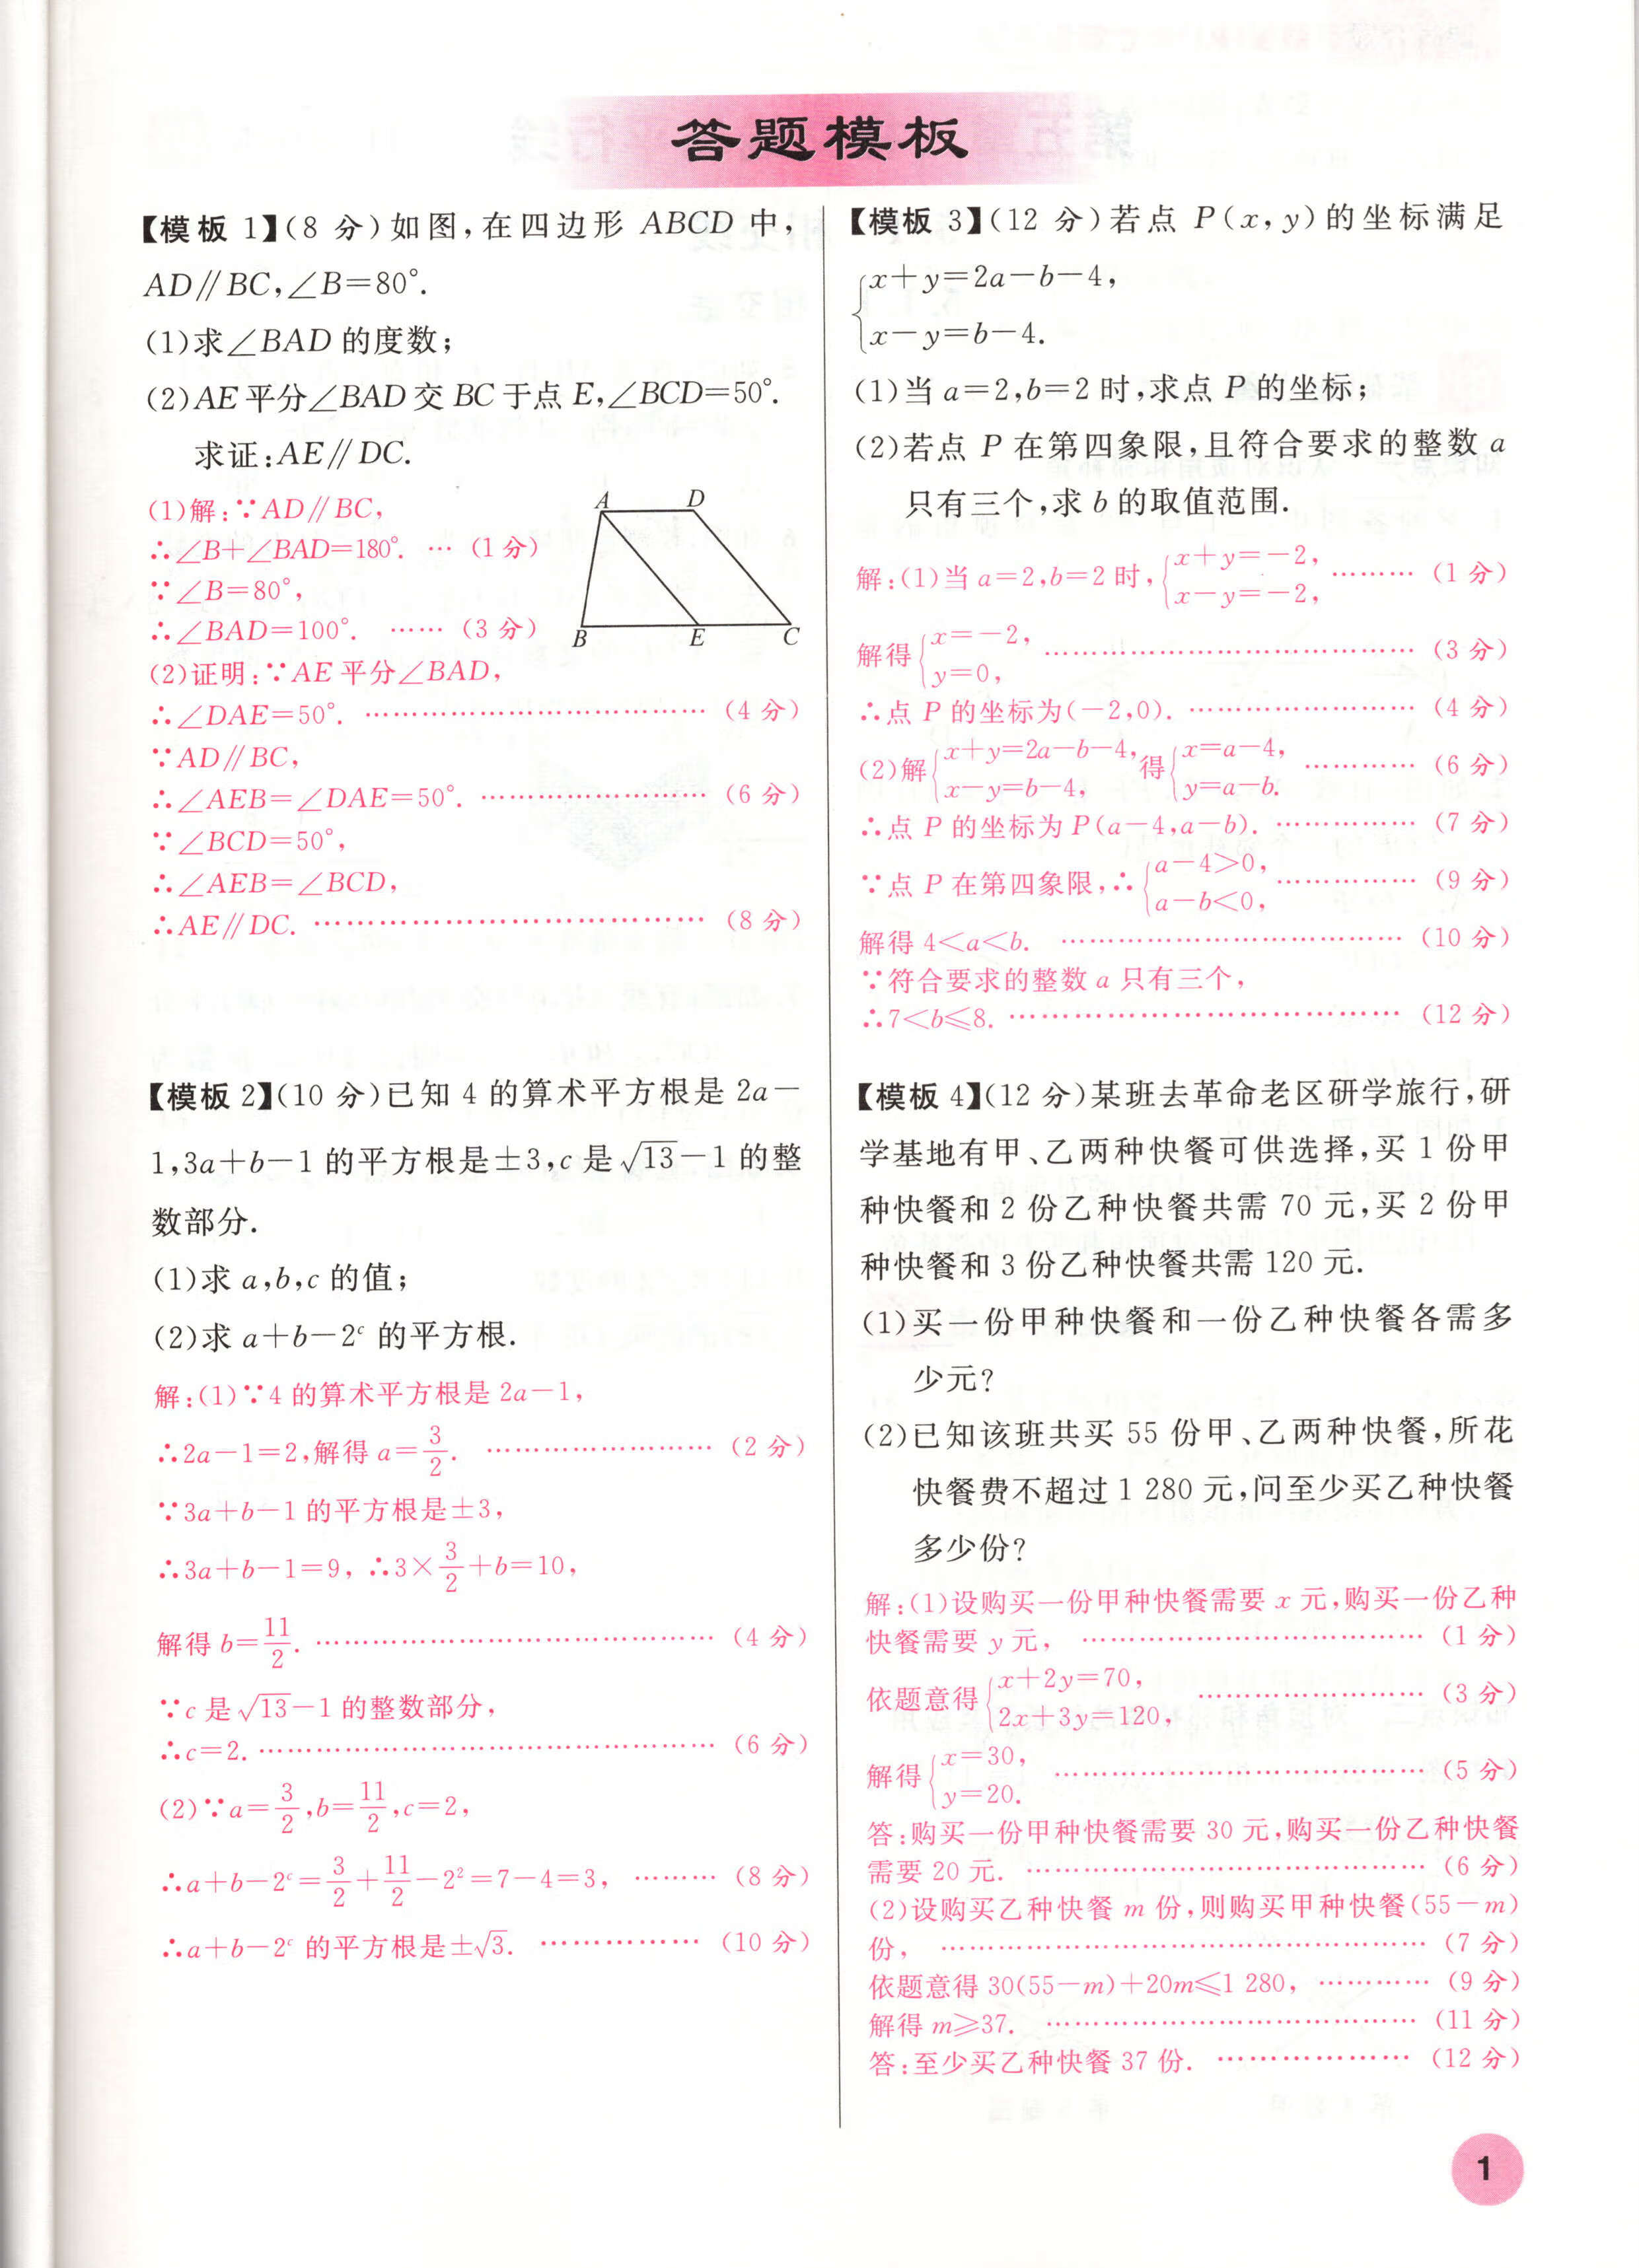 答题模板
【模板 1】(8 分)如图,在四边形 ABCD 中,
AD∥BC,∠B=80°.
(1)求∠BAD 的度数;
(2)AE 平分∠BAD 交 BC 于点 E,∠BCD=50°.
求证:AE∥DC.
(1)解:∵AD∥BC,
∴∠B+∠BAD=180°. … (1 分)
∵∠B=80°,
∴∠BAD=100°. …… (3 分)
A D
B E C
(2)证明:∵AE 平分∠BAD,
∴∠DAE=50°. ……………………………… (4 分)
∵AD∥BC,
∴∠AEB=∠DAE=50°. …………………… (6 分)
∵∠BCD=50°,
∴∠AEB=∠BCD,
∴AE∥DC. …………………………………… (8 分)
【模板 2】(10 分)已知 4 的算术平方根是 2a-
1,3a+b-1 的平方根是±3,c 是√13-1 的整
数部分.
(1)求 a,b,c 的值;
(2)求 a+b-2ᶜ 的平方根.
解:(1)∵4 的算术平方根是 2a-1,
∴2a-1=2,解得 a=3/2. …………………… (2 分)
∵3a+b-1 的平方根是±3,
∴3a+b-1=9,∴3×3/2+b=10,
解得 b=11/2. …………………………………… (4 分)
∵c 是√13-1 的整数部分,
∴c=2. ………………………………………… (6 分)
(2)∵a=3/2,b=11/2,c=2,
∴a+b-2ᶜ=3/2+11/2-2²=7-4=3, ……… (8 分)
∴a+b-2ᶜ 的平方根是±√3. ……………… (10 分)
【模板 3】(12 分)若点 P(x,y)的坐标满足
{x+y=2a-b-4,
x-y=b-4.
(1)当 a=2,b=2 时,求点 P 的坐标;
(2)若点 P 在第四象限,且符合要求的整数 a
只有三个,求 b 的取值范围.
解:(1)当 a=2,b=2 时,{x+y=-2, x-y=-2, ……… (1 分)
解得{x=-2, y=0, ………………………………… (3 分)
∴点 P 的坐标为(-2,0). …………………… (4 分)
(2)解{x+y=2a-b-4, x-y=b-4, 得{x=a-4, y=a-b. ………… (6 分)
∴点 P 的坐标为 P(a-4,a-b). …………… (7 分)
∵点 P 在第四象限,∴{a-4>0, a-b<0, …………… (9 分)
解得 4<a<b. ……………………………… (10 分)
∵符合要求的整数 a 只有三个,
∴7<b≤8. …………………………………… (12 分)
【模板 4】(12 分)某班去革命老区研学旅行,研
学基地有甲、乙两种快餐可供选择,买 1 份甲
种快餐和 2 份乙种快餐共需 70 元,买 2 份甲
种快餐和 3 份乙种快餐共需 120 元.
(1)买一份甲种快餐和一份乙种快餐各需多
少元?
(2)已知该班共买 55 份甲、乙两种快餐,所花
快餐费不超过 1 280 元,问至少买乙种快餐
多少份?
解:(1)设购买一份甲种快餐需要 x 元,购买一份乙种
快餐需要 y 元, ……………………………… (1 分)
依题意得{x+2y=70, 2x+3y=120, …………………… (3 分)
解得{x=30, y=20. ………………………………… (5 分)
答:购买一份甲种快餐需要 30 元,购买一份乙种快餐
需要 20 元. …………………………………… (6 分)
(2)设购买乙种快餐 m 份,则购买甲种快餐(55-m)
份, …………………………………………… (7 分)
依题意得 30(55-m)+20m≤1 280, ………… (9 分)
解得 m≥37. ………………………………… (11 分)
答:至少买乙种快餐 37 份. ………………… (12 分)
1